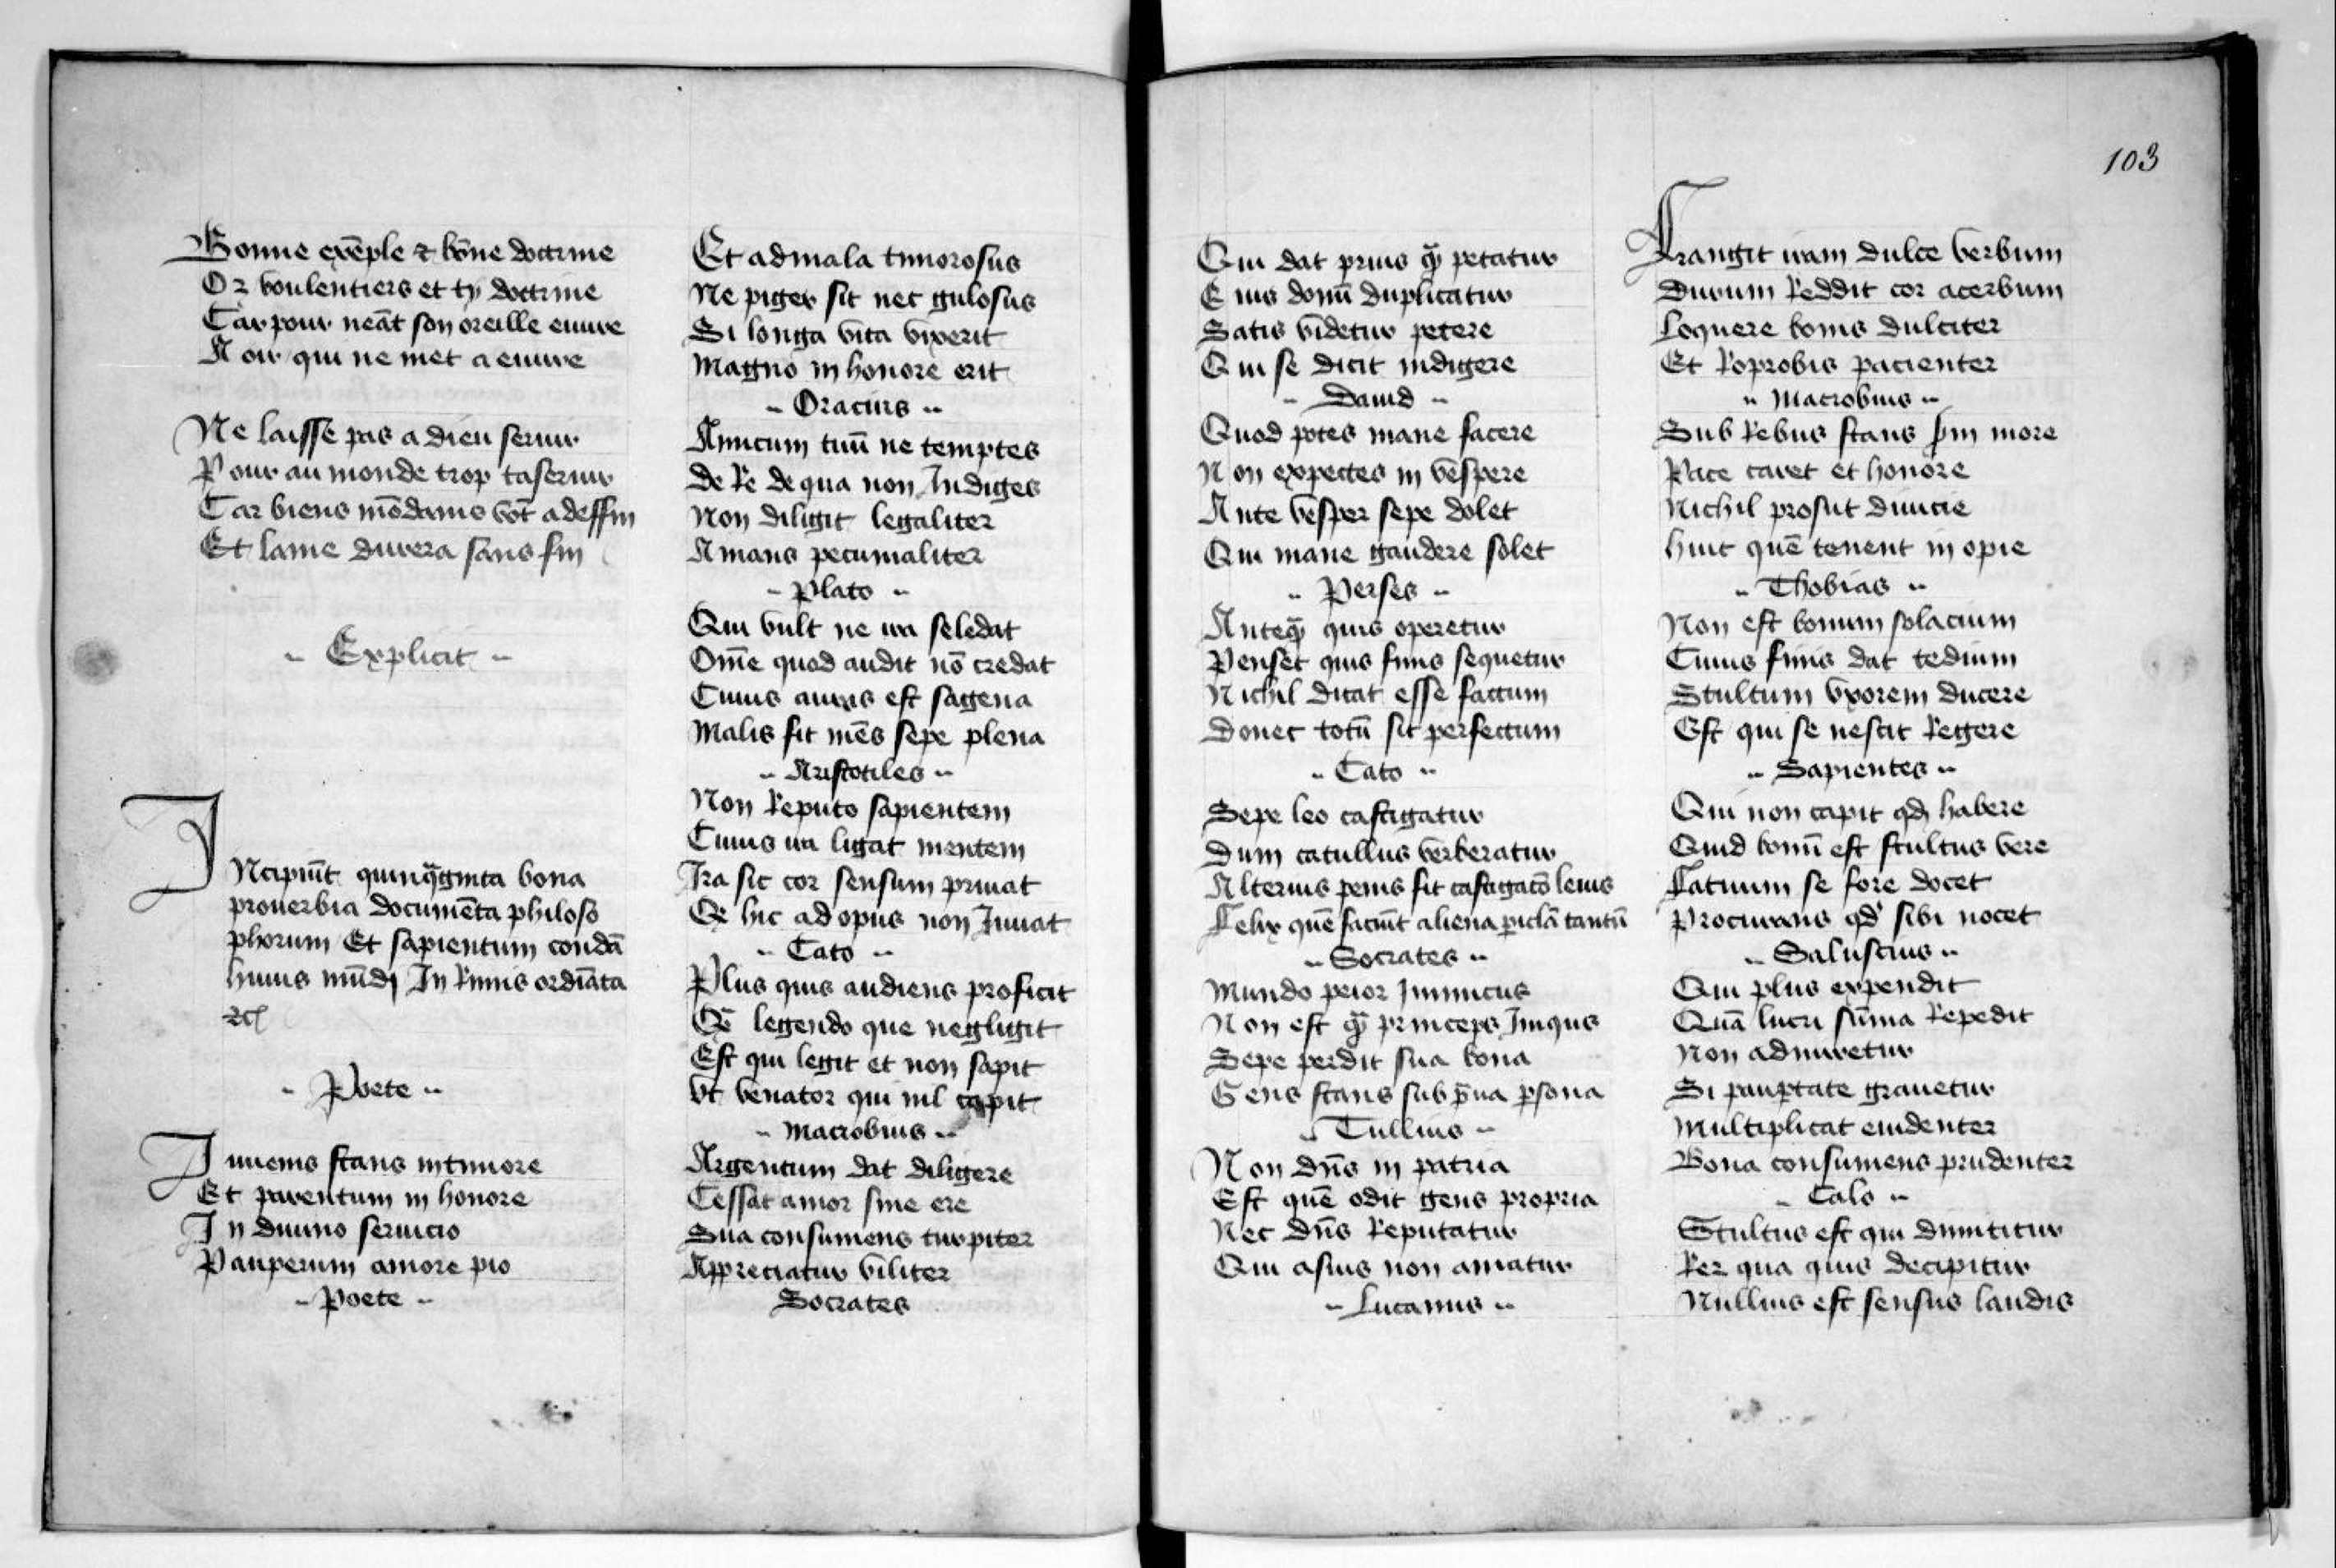 Bonne exēple ⁊ bōne doctrine
Or voulentiers et ty doctrine
Car pour neāt son oreille euure
A oir qui ne met a euure
Ne laisse pas a dieu seruir
Pour au monde trop taseruir
Car biens mōdains vōt a deffin
Et lame durera sans fin
Explicit
INcipiūt quinq̄ginta bona
prouerbia documēta philoso
phorum Et sapientum condā
huius mūdj In Rimis ordīata
⁊cͣ
Poete
Iuuenis stans in timore
Et parentum in honore
In diuino seruicio
Pauperum amore pio
Poete
Et ad mala timorosus
Ne piger sit nec gulosus
Si longa vita vixerit
Magno in honore erit
Oracius
Amicum tuū ne temptes
de Re de qua non Indiges
Non diligit legaliter
Amans pecunialiter
Plato
Qui vult ne ira se ledat
Om̄e quod audit nō credat
Cuius auris est sagena
Malis fit mēs sepe plena
Aristotiles
Non Reputo sapientem
Cuius ira ligat mentem
Ira sic cor sensum priuat
Qͤ hic ad opus non Iuuat
Cato
Plus quis audiens proficit
Qͤ legendo que negligit
Est qui legit et non sapit
vt venator qui nil capit
Macrobius
Argentum dat diligere
Cessat amor sine ere
Sua consumens turpiter
Appreciatur viliter
Socrates
Qui dat prius q̄ petatur
Eius donū duplicatur
Satis videtur petere
Qui se dicit indigere
Dauid
Quod potes mane facere
Non expectes in vespere
Ante vesper sepe dolet
Qui mane gaudere solet
Perses
Anteq̄ quis operetur
Penset quis finis sequetur
Nichil dicat esse factum
Donec totū sit perfectum
Cato
Sepe leo castigatur
Dum catullus verberatur
Alterius penis fit castigatō lenis
Felix quē faciūt aliena ꝑiclā tantū
Socrates
Mundo peior Inimicus
Non est q̄ princeps Iniqus
Sepe perdit sua bona
Gens stans sub p̄ua ꝑsona
Tullius
Non dn̄s in patria
Est quē odit gens propria
Nec dn̄s Reputatur
Qui asuis non amatur
Lucanus
103
Frangit iram dulce verbum
Durum Reddit cor acerbum
Loquere bonis dulciter
Et Reprobis pacienter
Macrobius
Sub Rebus stans sm̄ more
Pace caret et honore
Nichil prosūt diuicie
Huic quē tenent in opie
Thobias
Non est bonum solacium
Cuius finis dat tedium
Stultum vxorem ducere
Est qui se nescit Regere
Sapientes
Qui non capit qđ habere
Quid bonū est stultus vere
Fatuum se fore docet
Procurans qđ sibi nocet
Saluscius
Qui plus expendit
Quā lucri sūma Repedit
Non admiretur
Si pauꝑtate grauetur
Multiplicat euidenter
Bona consumens prudenter
Calo
Stultus est qui dimititur
Per qua quis decipitur
Nullius est sensus laudis